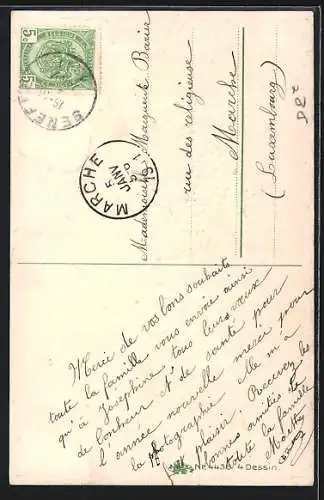 5c
5c
BENEFFE
MARCHE
5
JANV
5-6
191
Mademoiselle Marguerite
rue des religieuse
Marche
(Luxembourg)
235
Merci de vos bons souhaits
toute la famille vous envoie ainsi
qu'à Josephine tous leurs voeux
de bonheur et de santé pour
l'année nouvelle merci pour
la photographie elle m'a
fait plaisir. Recevez les
bonnes amitiés de
toute la famille
Nº 4436, 4 Dessin.